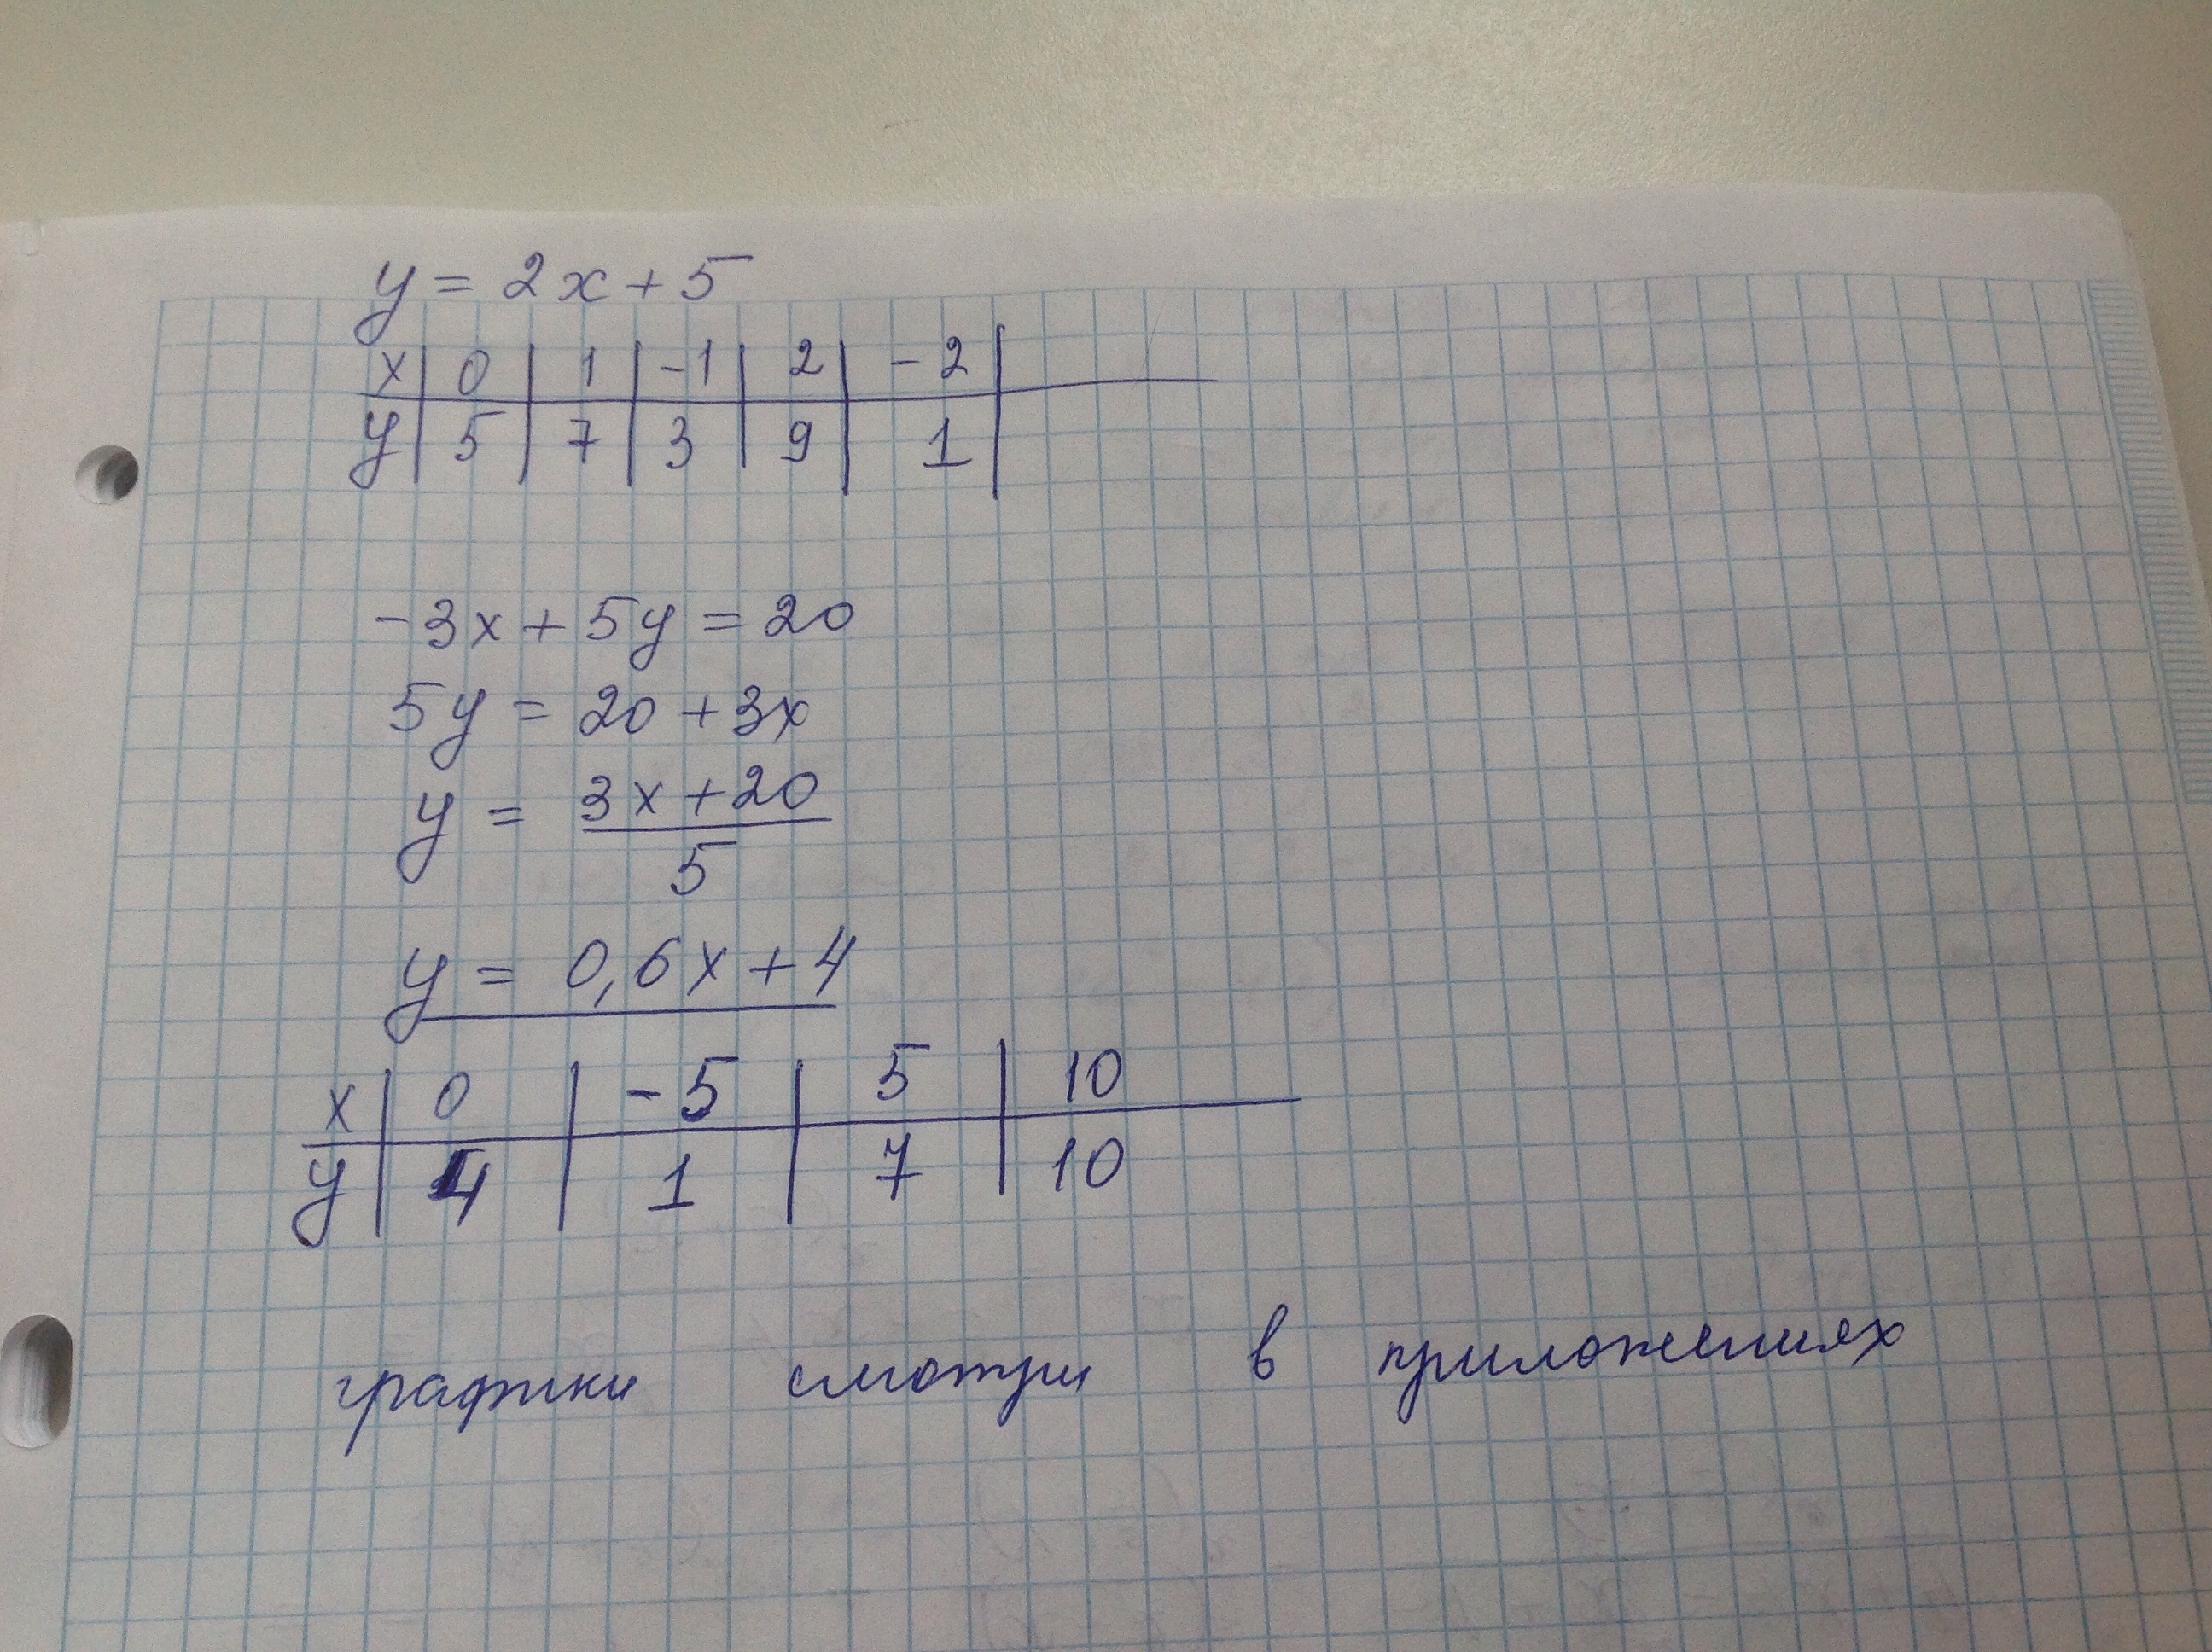 y = 2x + 5
x | 0 | 1 | -1 | 2 | -2 |
y | 5 | 7 | 3 | 9 | 1 |
-3x + 5y = 20
5y = 20 + 3x
y = 3x + 20
5
y = 0,6x + 4
x | 0 | -5 | 5 | 10
y | 4 | 1 | 7 | 10
графики смотри в приложениях